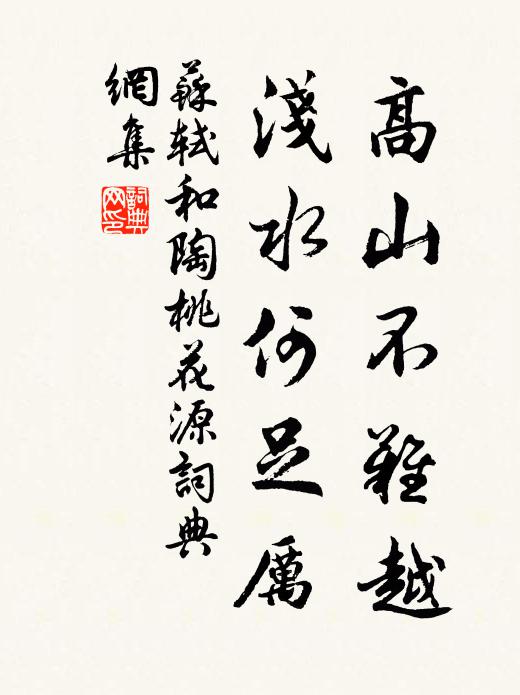 高山不難越
淺水何足厲
蘇軾和陶桃花源詞典
網集
詞典
网印